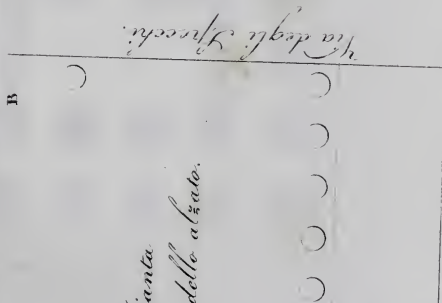 B
Via degli Specchi.
ianta
dello alzato.